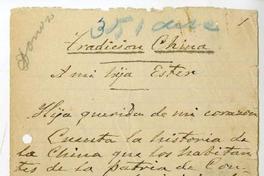 1
Tradicion China
A mi hija Ester
Hija querida de mi corazon
Cuenta la historia de
la China que los habitan-
tes de la patria de Con-